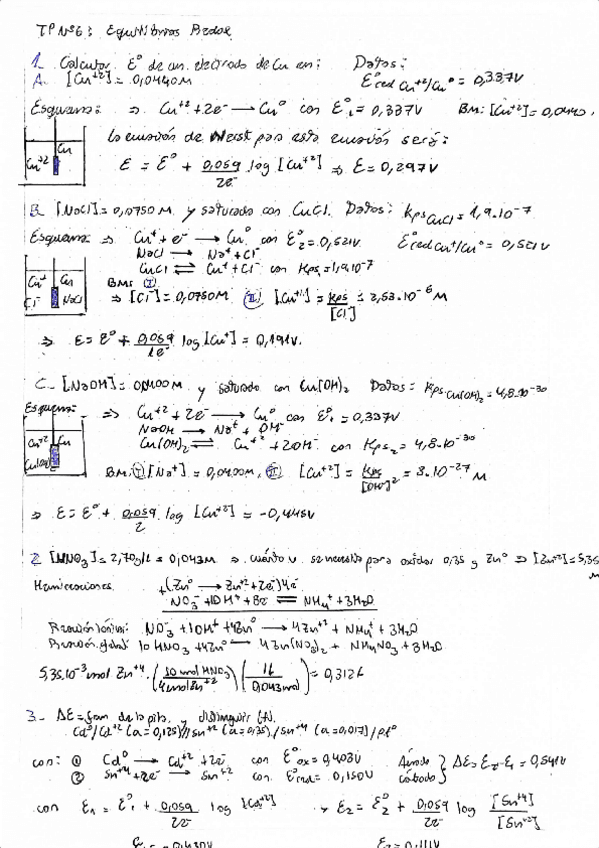 TP Nº6: Equilibrios Redox
1_ Calcular E° de un electrodo de Cu en: Datos:
A. [Cu+2] = 0,0440M E°red Cu+2/Cu° = 0,337V
Esquema: ⇒ Cu+2 + 2e- → Cu° con E°1 = 0,337V BM: [Cu+2] = 0,0440
Cu+2 Cu
la ecuación de Nerst para esta ecuación será:
E = E° + 0,059/2e- log [Cu+2] ⇒ E = 0,297V
B. [NaCl] = 0,0750M y saturado con CuCl. Datos: Kps CuCl = 1,9.10-7
Esquema ⇒ Cu+ + e- → Cu° con E°2 = 0,521V E°red Cu+/Cu° = 0,521V
NaCl → Na+ + Cl-
CuCl ⇌ Cu+ + Cl- con Kps = 1,9.10-7
Cu+ Cu
Cl- NaCl
BM: (I) ⇒ [Cl-] = 0,0750M (II) [Cu+] = Kps/[Cl-] = 2,53.10-6 M
⇒ E = E° + 0,059/1e- log [Cu+] = 0,191V.
C_ [NaOH] = 0,0400M y saturado con Cu(OH)2 Datos = Kps Cu(OH)2 = 4,8.10-20
Esquema ⇒ Cu+2 + 2e- → Cu° con E°1 = 0,337V
NaOH → Na+ + OH-
Cu(OH)2 ⇌ Cu+2 + 2OH- con Kps2 = 4,8.10-20
Cu+2 Cu
BM: (I) [Na+] = 0,0400M, (II) [Cu+2] = Kps/[OH-]2 = 3.10-27 M
⇒ E = E° + 0,059/2 log [Cu+2] = -0,445V
2. [HNO3] = 2,70g/L = 0,043M ⇒ cuánto v se necesita para oxidar 0,35 g Zn° ⇒ [Zn+2] = 5,35
M
Hemirreaciones +(Zn° → Zn+2 + 2e-) 4e-
NO3- + 10H+ + 8e- ⇌ NH4+ + 3H2O
Reacción Iónica: NO3- + 10H+ + 4Zn° → 4Zn+2 + NH4+ + 3H2O
Reacción global: 10 HNO3 + 4Zn° → 4Zn(NO3)2 + NH4NO3 + 3H2O
5,35.10-3 mol Zn+4 . (10 mol HNO3/4 mol Zn+2) (1L/0,043mol) = 0,312L
3_ ΔE = fem de la pila y distinguir (+).
Cd°/Cd+2 (a = 0,125)//Sn+2 (a = 0,35)/Sn+4 (a = 0,017)/Pt°
con: (1) Cd° → Cd+2 + 2e- con E°ox = 0,403V Ánodo
(2) Sn+4 + 2e- → Sn+2 con E°red = 0,150V Cátodo } ΔE = E2 - E1 = 0,541V
con E1 = E°1 + 0,059/2e- log [Cd+2] y E2 = E°2 + 0,059/2e- log [Sn+4]/[Sn+2]